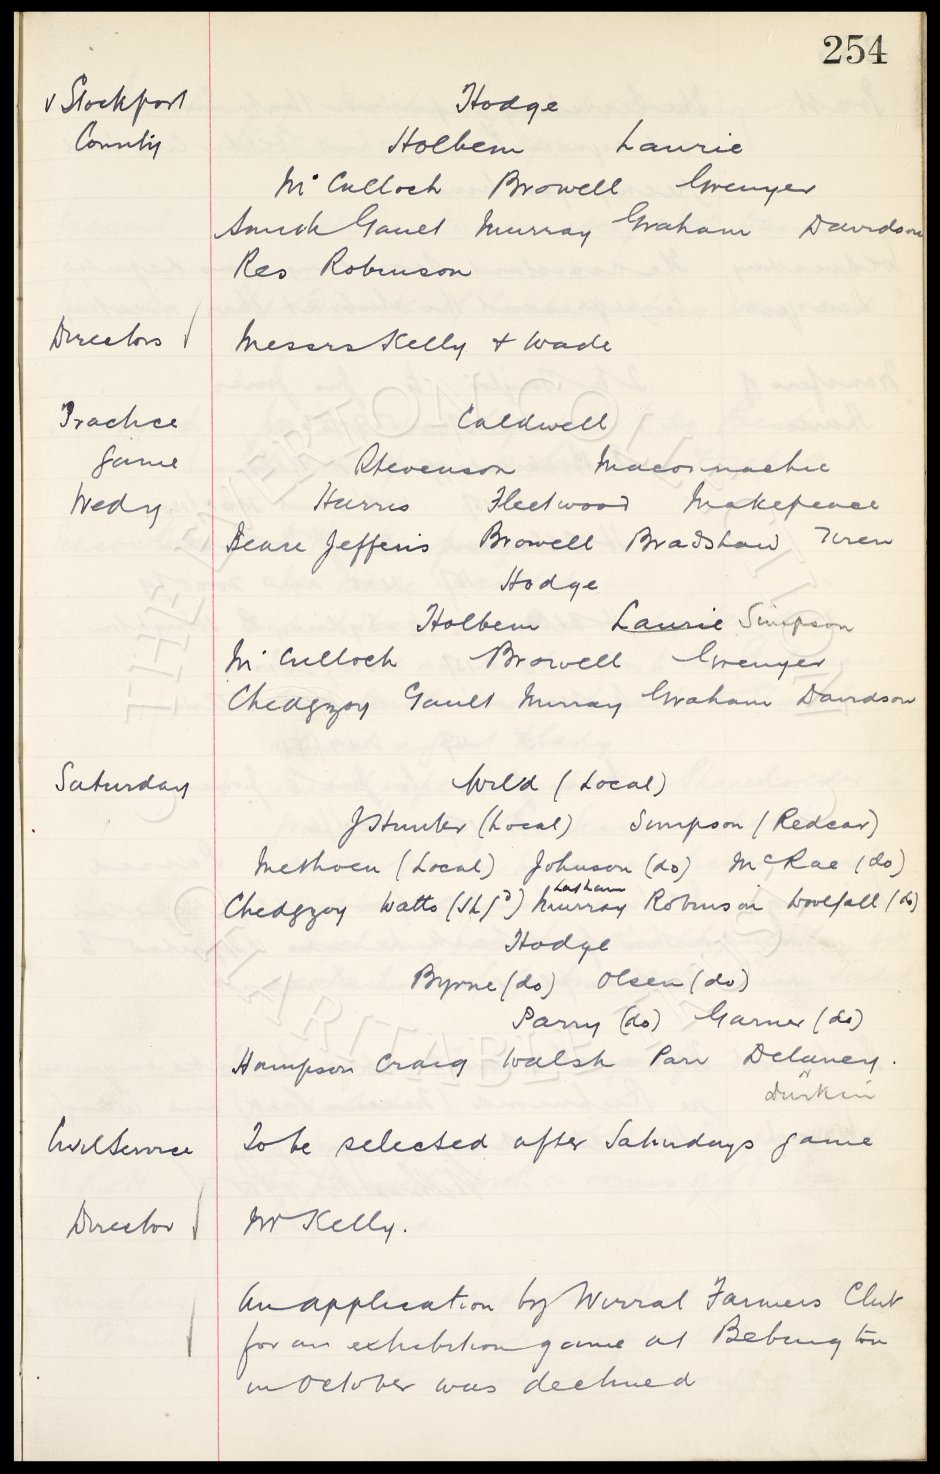 254
v Stockport Hodge
County Holbem Laurie
Mc Culloch Browell Grenyer
Smith Gault Murray Graham Davidson
Res Robinson
Directors Messrs Kelly & Wade
Practice Caldwell
Game Stevenson Maconnachie
Wedy. Harris Fleetwood Makepeace
Beare Jefferis Browell Bradshaw Wren
Hodge
Holbem Laurie Simpson
Mc Culloch Browell Grenyer
Chedgzoy Gault Murray Graham Davidson
Saturday Wild (Local)
J Hunter (Local) Simpson (Redcar)
Methven (Local) Johnson (do) McRae (do)
Latham
Chedgzoy Watts Murray Robinson Woolfall (do)
Hodge
Byrne (do) Olsen (do)
Parry (do) Garner (do)
Hampson Craig Walsh Parr Delaney.
or
Durkin
Civil Service To be selected after Saturdays game
Director Mr Kelly.
An application by Wirral Farmers Club
for an exhibition game at Bebington
in October was declined
THE EVERTON COLLECTION
CHARITABLE TRUST